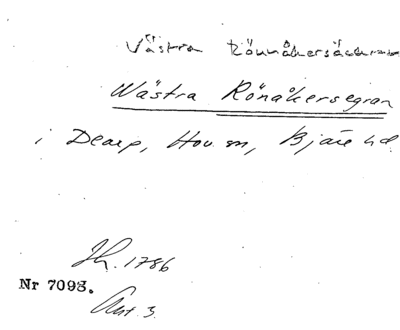 Västra Rönnåkersäck
Wästra Rönåkersegran
i Dearp, Hov sn, Bjäre hd.
Jh. 1786
Nr 7098.
Akt 3.